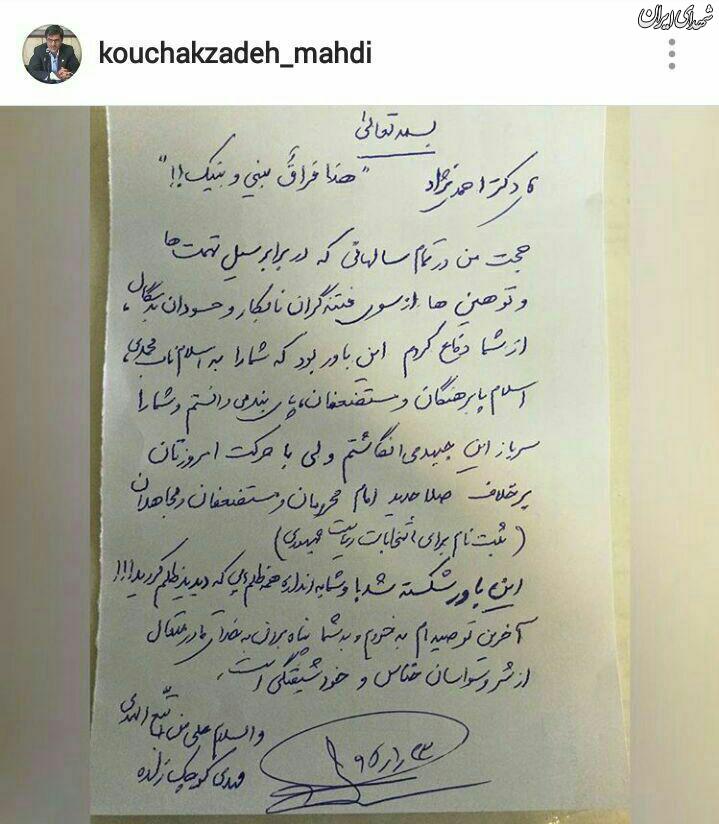 شهدای ایران
kouchakzadeh_mahdi
بسمه تعالی
دکتر احمدی نژاد "هذا فراقُ بینی و بینک!!"
حجت من در تمام سالهائی که در برابر سیل تهمت ها
و توهین ها از سوی فتنه گران نابکار و حسودان بدسگال،
از شما دفاع کردم این باور بود که شما را به اسلام ناب محمدی،
اسلام پابرهنگان و مستضعفان، پای بند می دانستم و شما را
سرباز این جبهه می انگاشتم ولی با حرکت امروزتان
برخلاف صلاحدید امام محرومان و مستضعفان و مجاهدان
(ثبت نام برای انتخابات ریاست جمهوری)
این باور شکسته شد با و شما به اندازه همه ظلم هایی که دیدید ظلم کردید!!!
آخرین توصیه ام به خودم و به شما پناه بردن به خدای قادر متعال
از شر وسواسان خناس و خودشیفتگی است.
والسلام علی من اتبع الهدی
مهدی کوچک زاده
۲۳ ر ۱ ر ۹۶